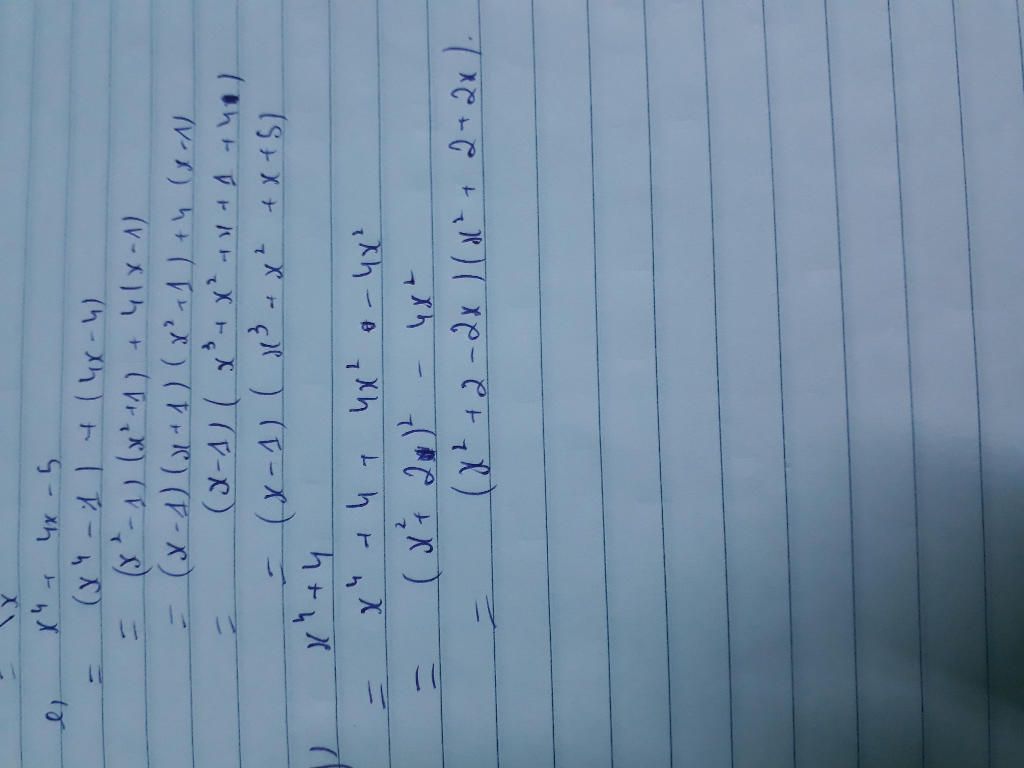 e, x⁴ + 4x - 5
= (x⁴ - 1) + (4x - 4)
= (x² - 1)(x² + 1) + 4(x - 1)
= (x - 1)(x + 1)(x² + 1) + 4(x - 1)
= (x - 1)(x³ + x² + x + 1 + 4)
= (x - 1)(x³ + x² + x + 5)
) x⁴ + 4
= x⁴ + 4 + 4x² - 4x²
= (x² + 2)² - 4x²
= (x² + 2 - 2x)(x² + 2 + 2x).